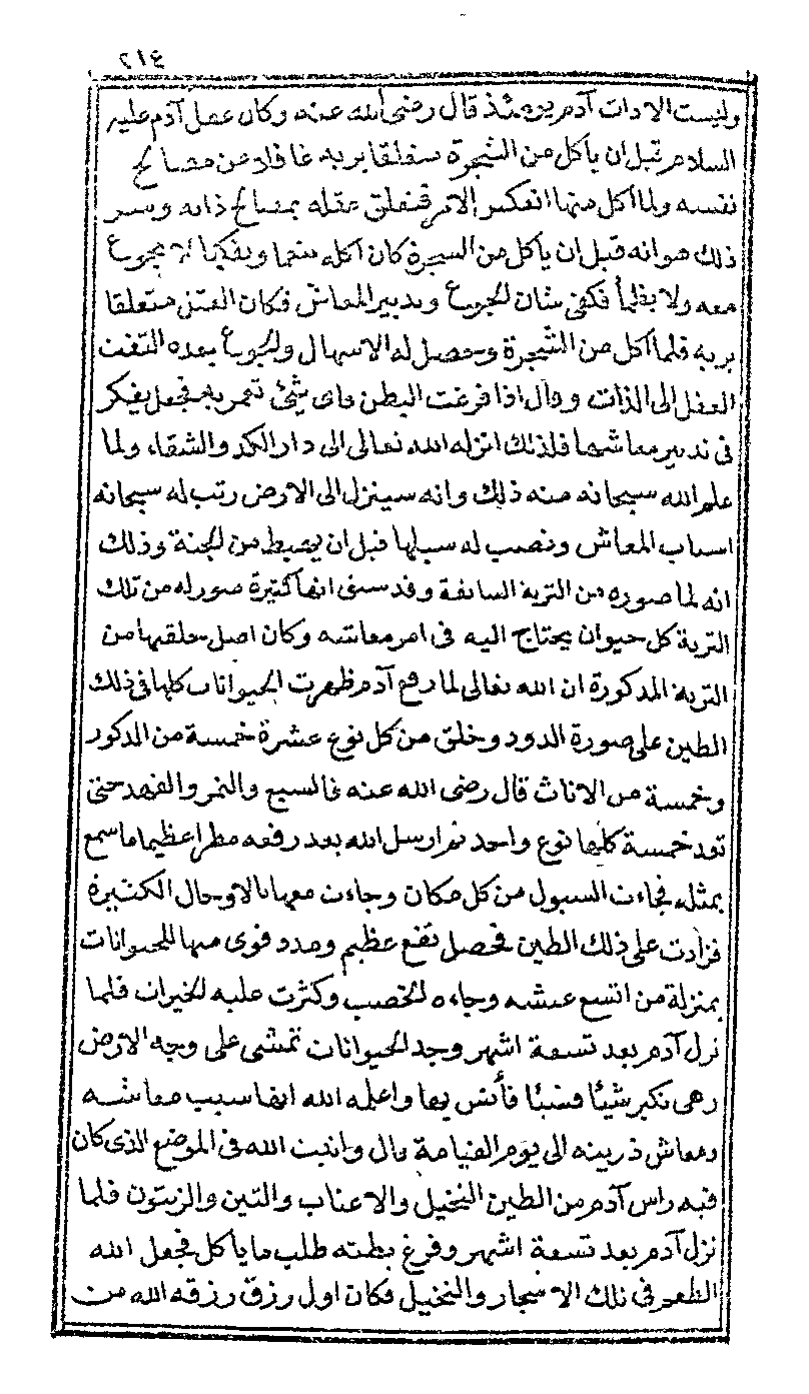 ٢١٤
وليست الا ذات آدم يومئذ قال رضى الله عنه وكان عقل آدم عليه
السلام قبل ان يأكل من الشجرة متعلقا بربه غافلا عن مصالح
نفسه ولما اكل منها انعكس الامر فتعلق عقله بمصالح ذاته وسر
ذلك هو انه قبل ان يأكل من الشجرة كان اكله نعما وتفكها لا يجوع
معه ولا يظمأ فكفى شان الجوع وتدبير المعاش فكان العقل متعلقا
بربه فلما اكل من الشجرة وحصل له الاسهال والجوع بعده التفت
العقل الى الذات وقال اذا فرغت البطن فاى شيئ تعمر به فجعل يفكر
فى تدبير معاشها فلذلك انزله الله تعالى الى دار الكد والشقاء ولما
علم الله سبحانه منه ذلك وانه سينزل الى الارض رتب له سبحانه
اسباب المعاش ونصب له سبلها قبل ان يهبط من الجنة وذلك
انه لما صوره من التربة السابقة وقد سبق انها كثيرة صور له من تلك
التربة كل حيوان يحتاج اليه فى امر معاشه وكان اصل خلقها من
التربة المذكورة ان الله تعالى لما رفع آدم ظهرت الحيوانات كلها فى ذلك
الطين على صورة الدود وخلق من كل نوع عشرة خمسة من الذكور
وخمسة من الاناث قال رضى الله عنه فالسبع والنمر والفهد حتى
تعد خمسة كلها نوع واحد ثم ارسل الله بعد رفعه مطرا عظيما ما سمع
بمثله فجاءت السيول من كل مكان وجاءت معها بالاوحال الكثيرة
فزادت على ذلك الطين فحصل نفع عظيم ومدد قوى منها للحيوانات
بمنزلة من اتسع عيشه وجاءه الخصب وكثرت عليه الخيرات فلما
نزل آدم بعد تسعة اشهر وجد الحيوانات تمشى على وجه الارض
وهى تكبر شيئا فشيئا فأنس بها واعلمه الله انها سبب معاشه
ومعاش ذريته الى يوم القيامة قال وانبت الله فى الموضع الذى كان
فيه راس آدم من الطين النخيل والاعناب والتين والزيتون فلما
نزل آدم بعد تسعة اشهر وفرغ بطنه طلب ما ياكل فجعل الله
الطعم فى تلك الاشجار والنخيل فكان اول رزق رزقه الله من